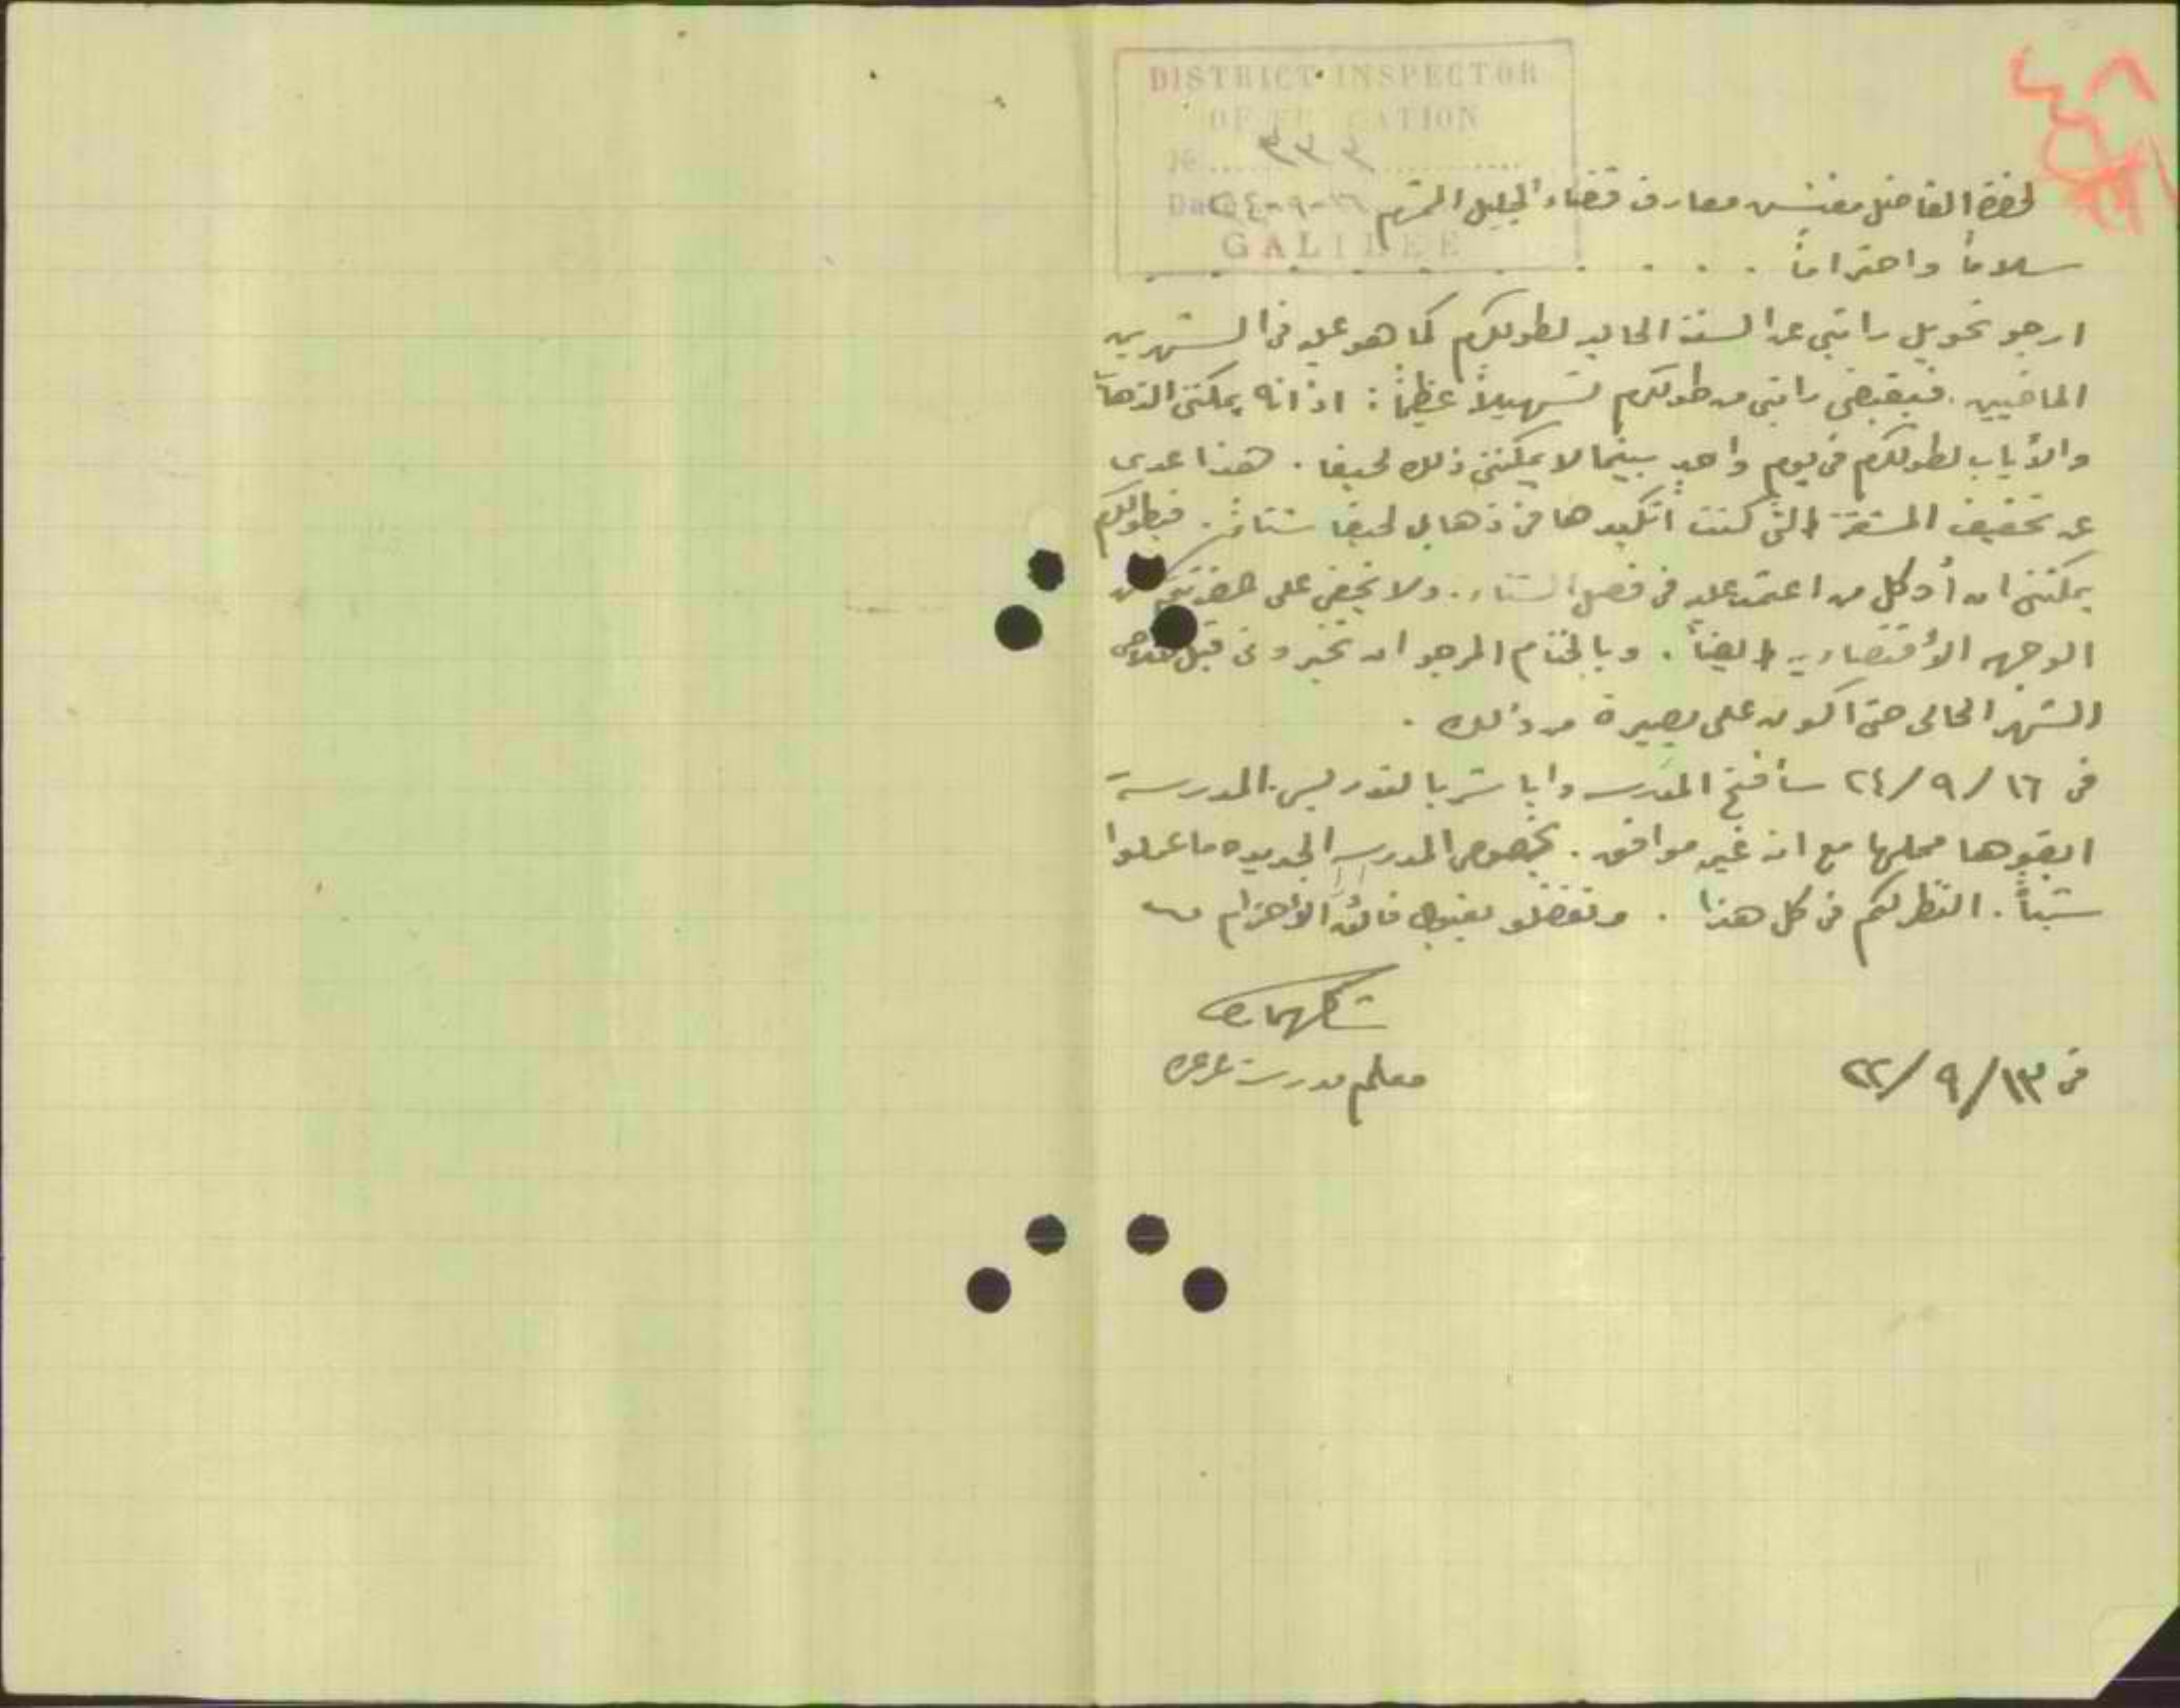 DISTRICT INSPECTOR
OF EDUCATION
№
Date ١٦-٩-٢٤
GALILEE
لحضرة الفاضل مفتش معارف قضاء الجليل المحترم
سلاماً واحتراماً
ارجو تحويل راتبي عن السنة الحاليه لطولكرم كما هو عليه في الشهرين
الماضيين. فبقبضي راتبي من طولكرم تسهيلاً عظيماً: اذ انه يمكنني الذهاب
والأياب لطولكرم في يوم واحد بينما لا يمكنني ذلك لحيفا. هذا عدى
عن تخفيف المشقة التي كنت اتكبدها في ذهابي لحيفا شتاءً. فبطولكرم
يمكنني ان أوكل من اعتمد عليه في فصل الشتاء. ولا يخفى على حضرتكم من
الوجهه الأقتصاديه ايضاً. وبالختام المرجو ان تخبروني قبل
الشهر الحالي حتى اكون على بصيرة من ذلك.
في ١٦/٩/٢٤ سأفتح المدرسه واباشر بالتدريس. المدرسة
ابقوها محلها مع انه غير موافق. بخصوص المدرسه الجديده ما عملوا
شيئاً. النظر لكم في كل هذا. وتفضلو بقبول فائق الأحترام
معلم مدرسة عرعره
في ١٣/٩/٢٢